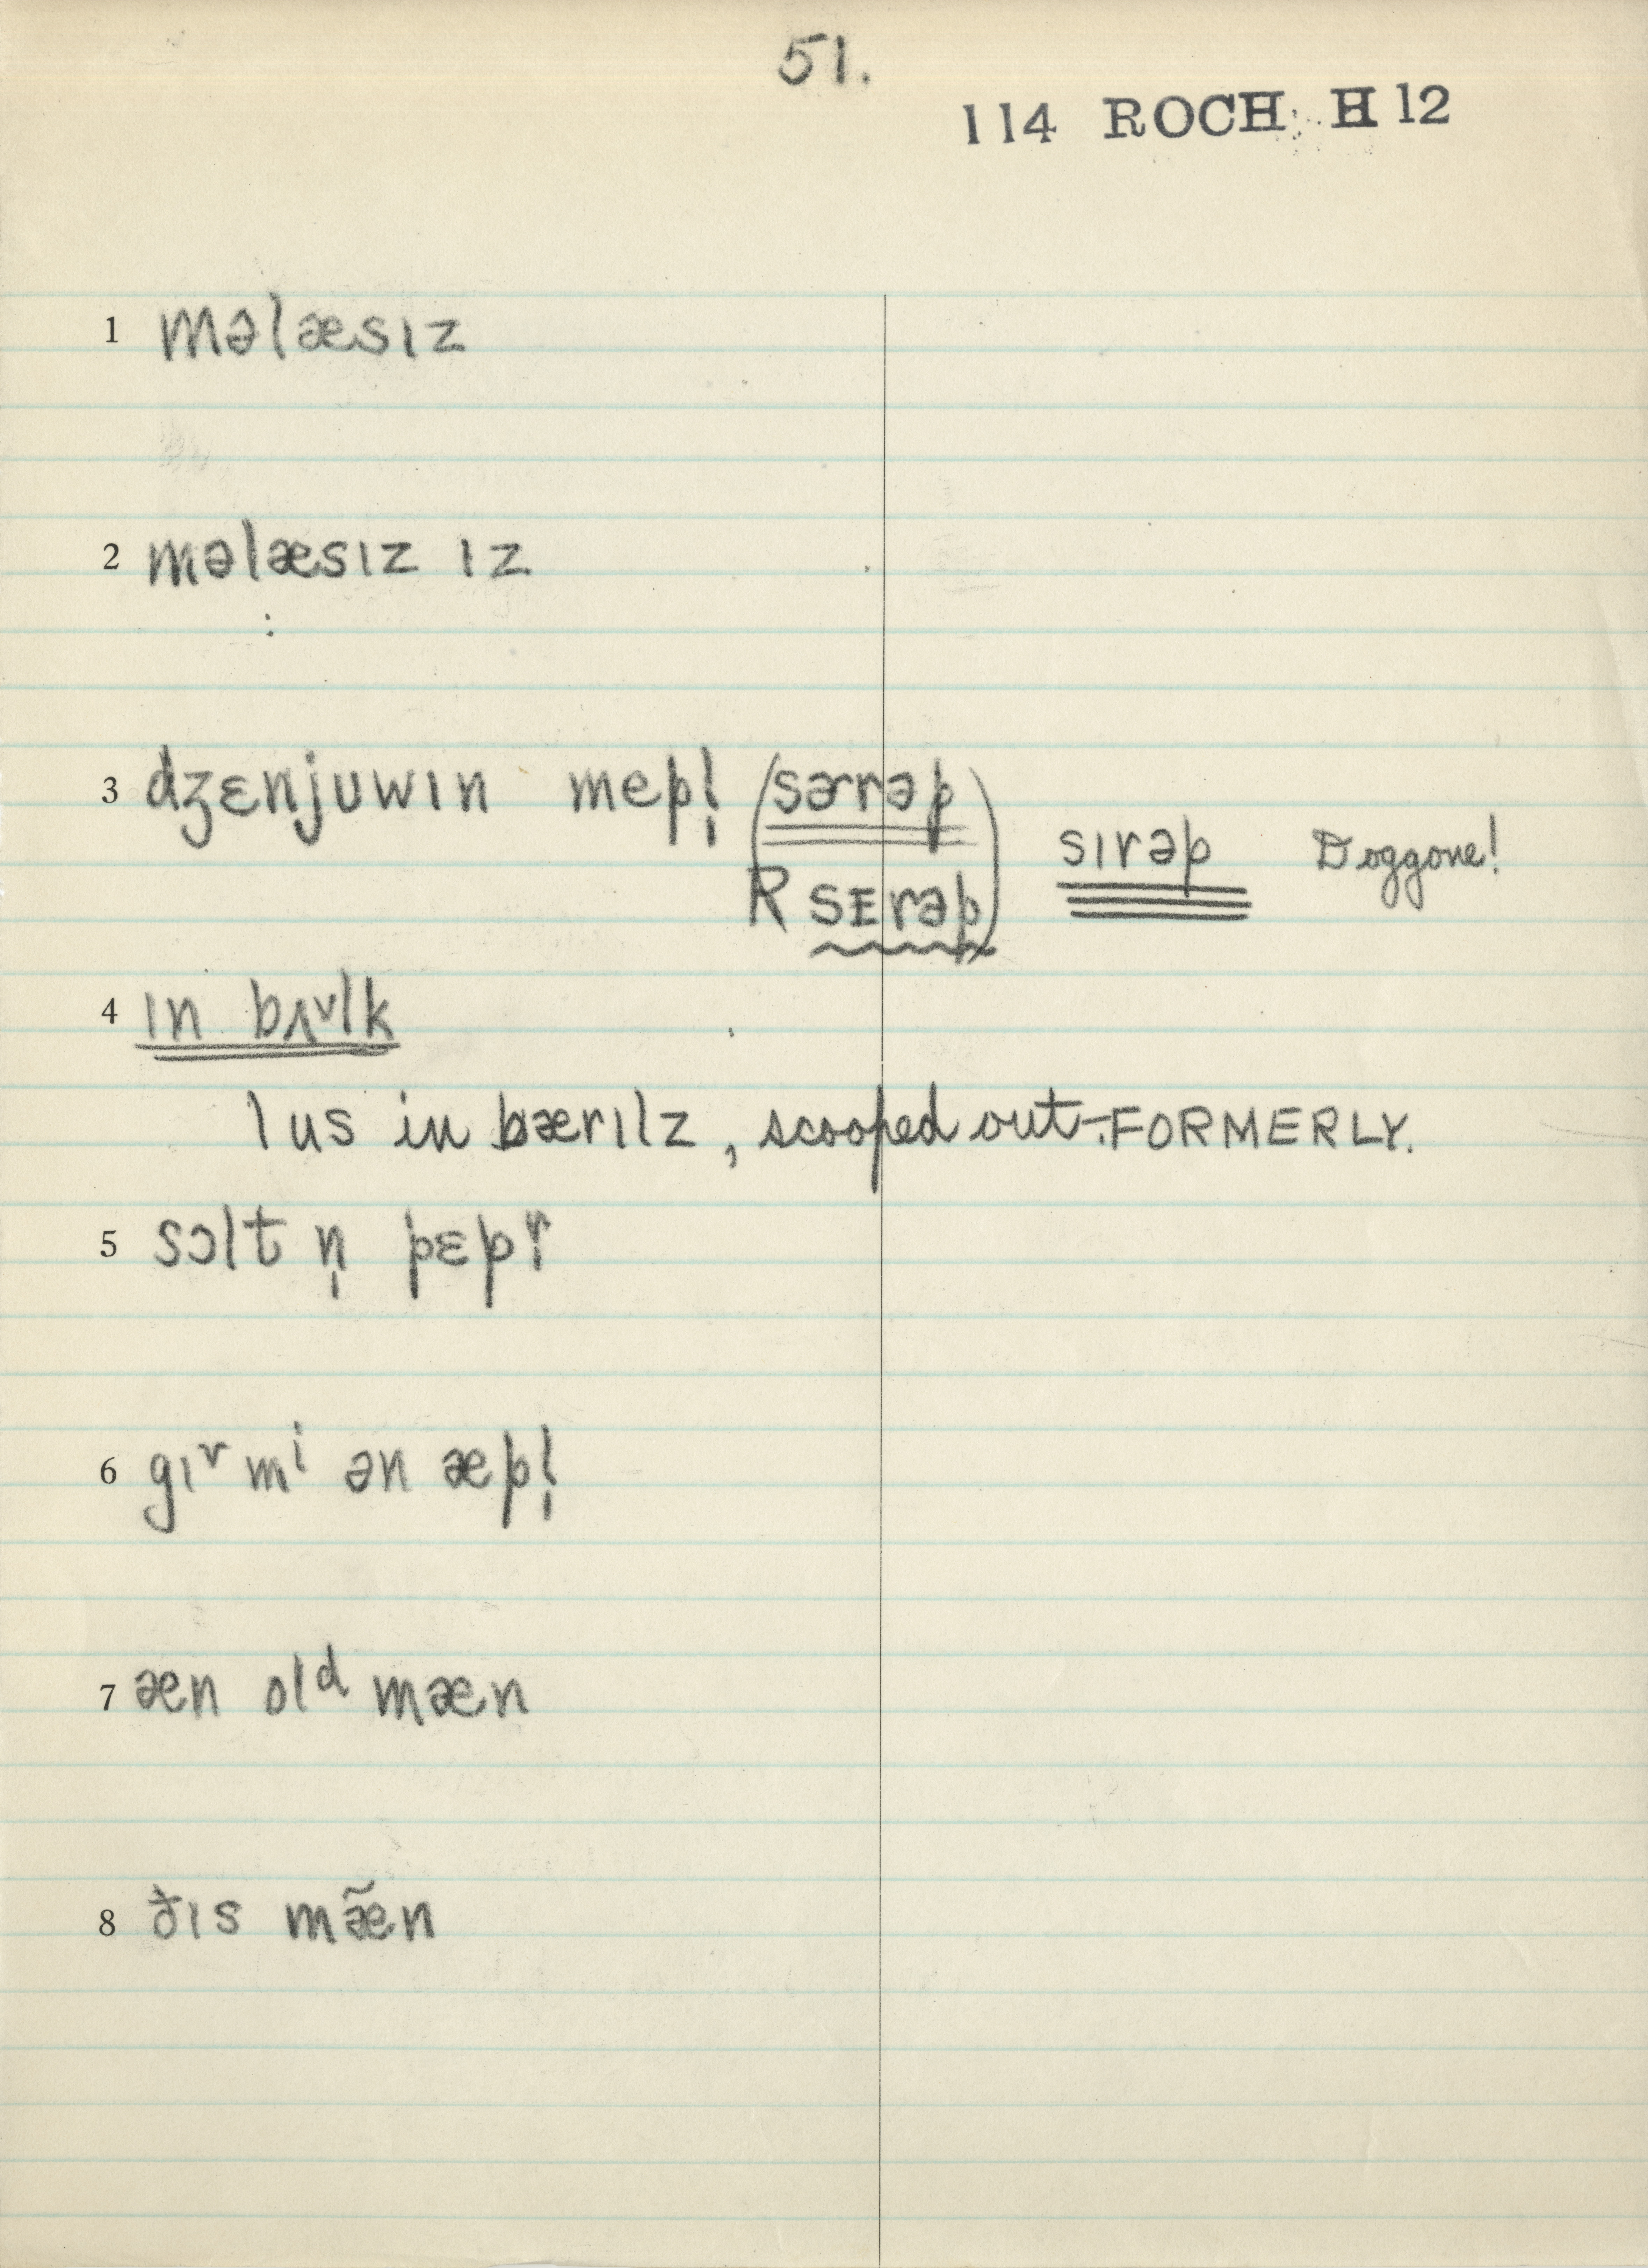 51.
114 ROCH H 12
1 məlæsɪz
2 məlæsɪz ɪz
3 dʒɛnjuwɪn mepl̩ (sɚrəp sɪrəp Doggone!
R sᴇrəp)
4 ɪn bʌᵛlk
1 us in bærɪlz, scooped out–FORMERLY.
5 sɔlt n̩ pɛpɚ
6 gɪᵛ mⁱ ən æpl̩
7 æn olᵈ mæn
8 ðɪs mæ̃n